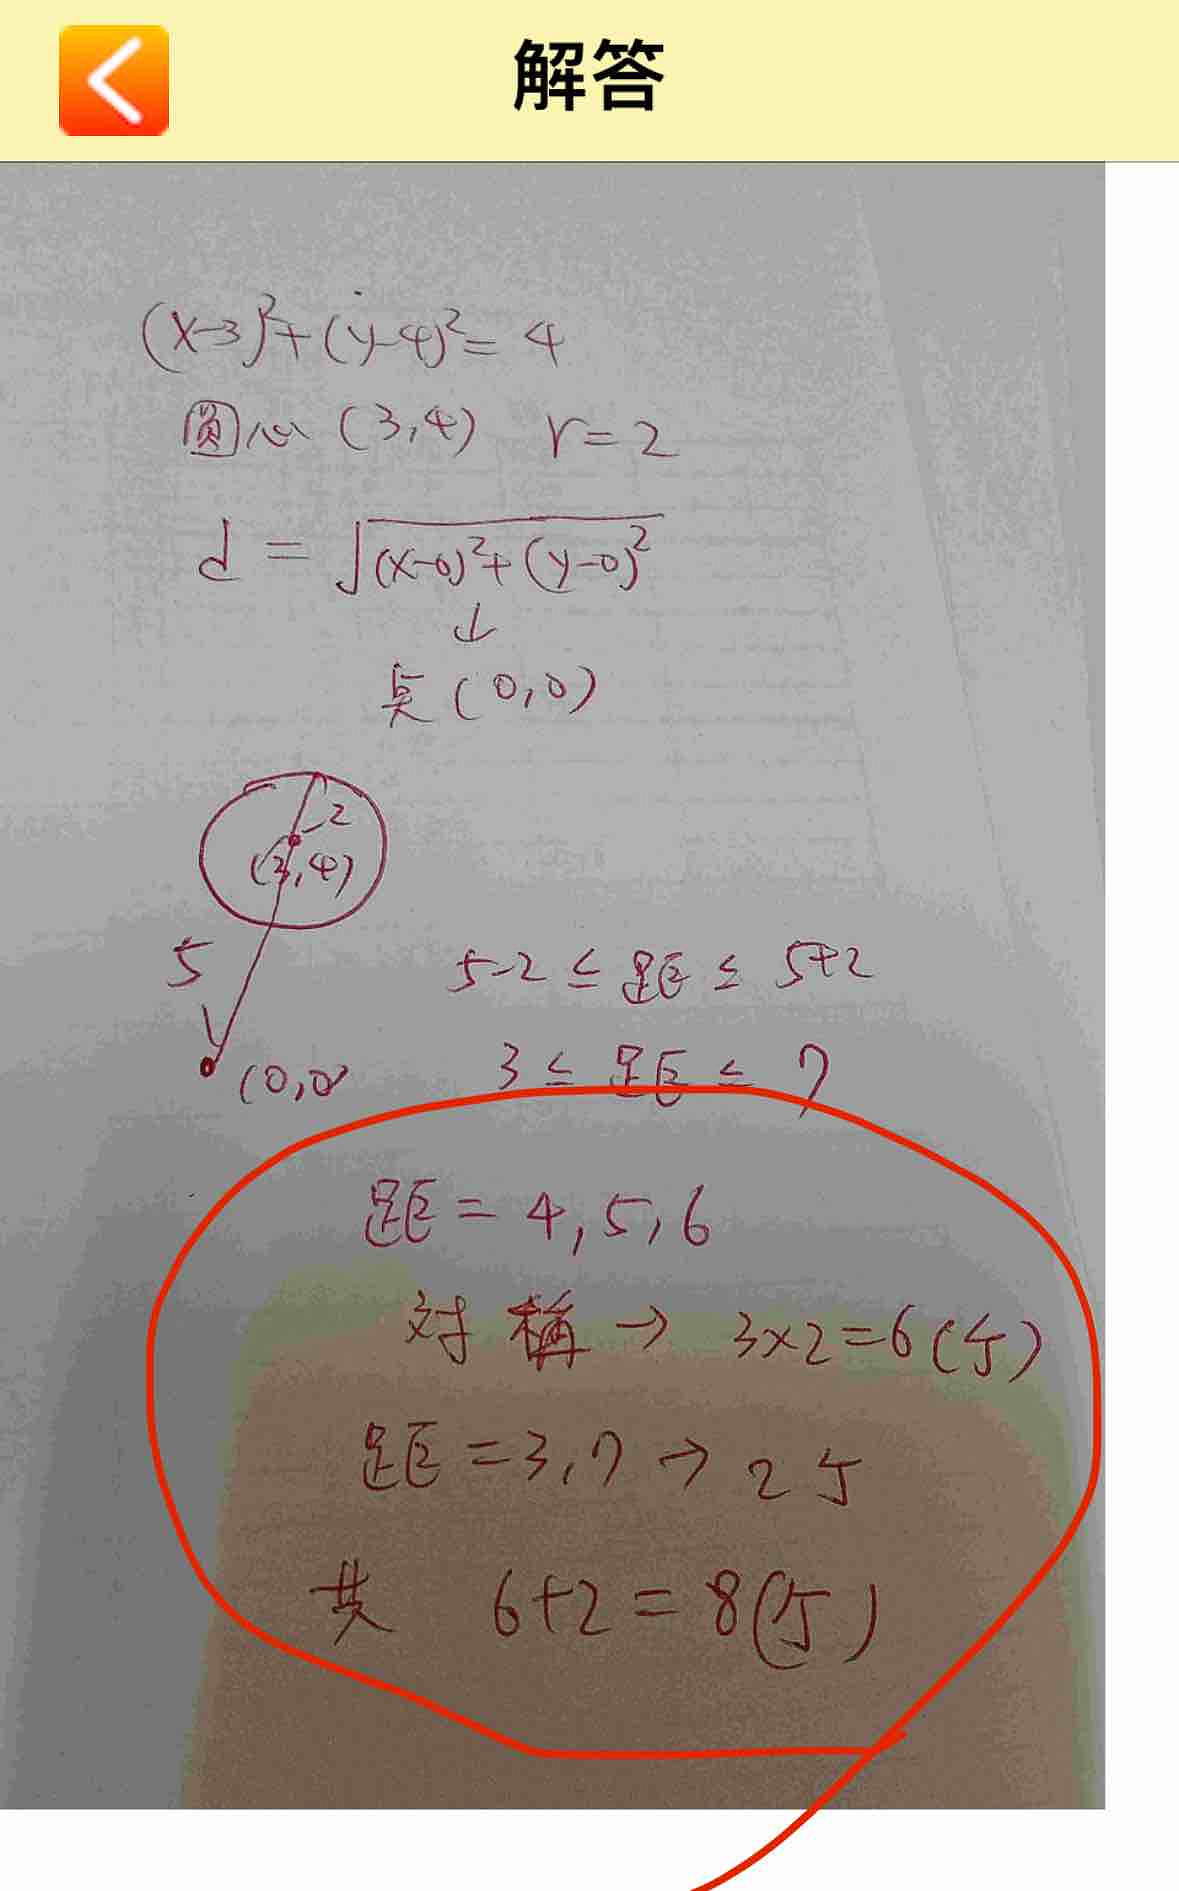 解答
(x-3)²+(y-4)²=4
圓心 (3,4) r=2
d = √(x-0)²+(y-0)²
↓
点 (0,0)
2
(3,4)
5
5-2 ≤ 距 ≤ 5+2
(0,0)
3 ≤ 距 ≤ 7
距 = 4,5,6
対稱 → 3×2=6(个)
距 = 3,7 → 2个
共 6+2=8(个)